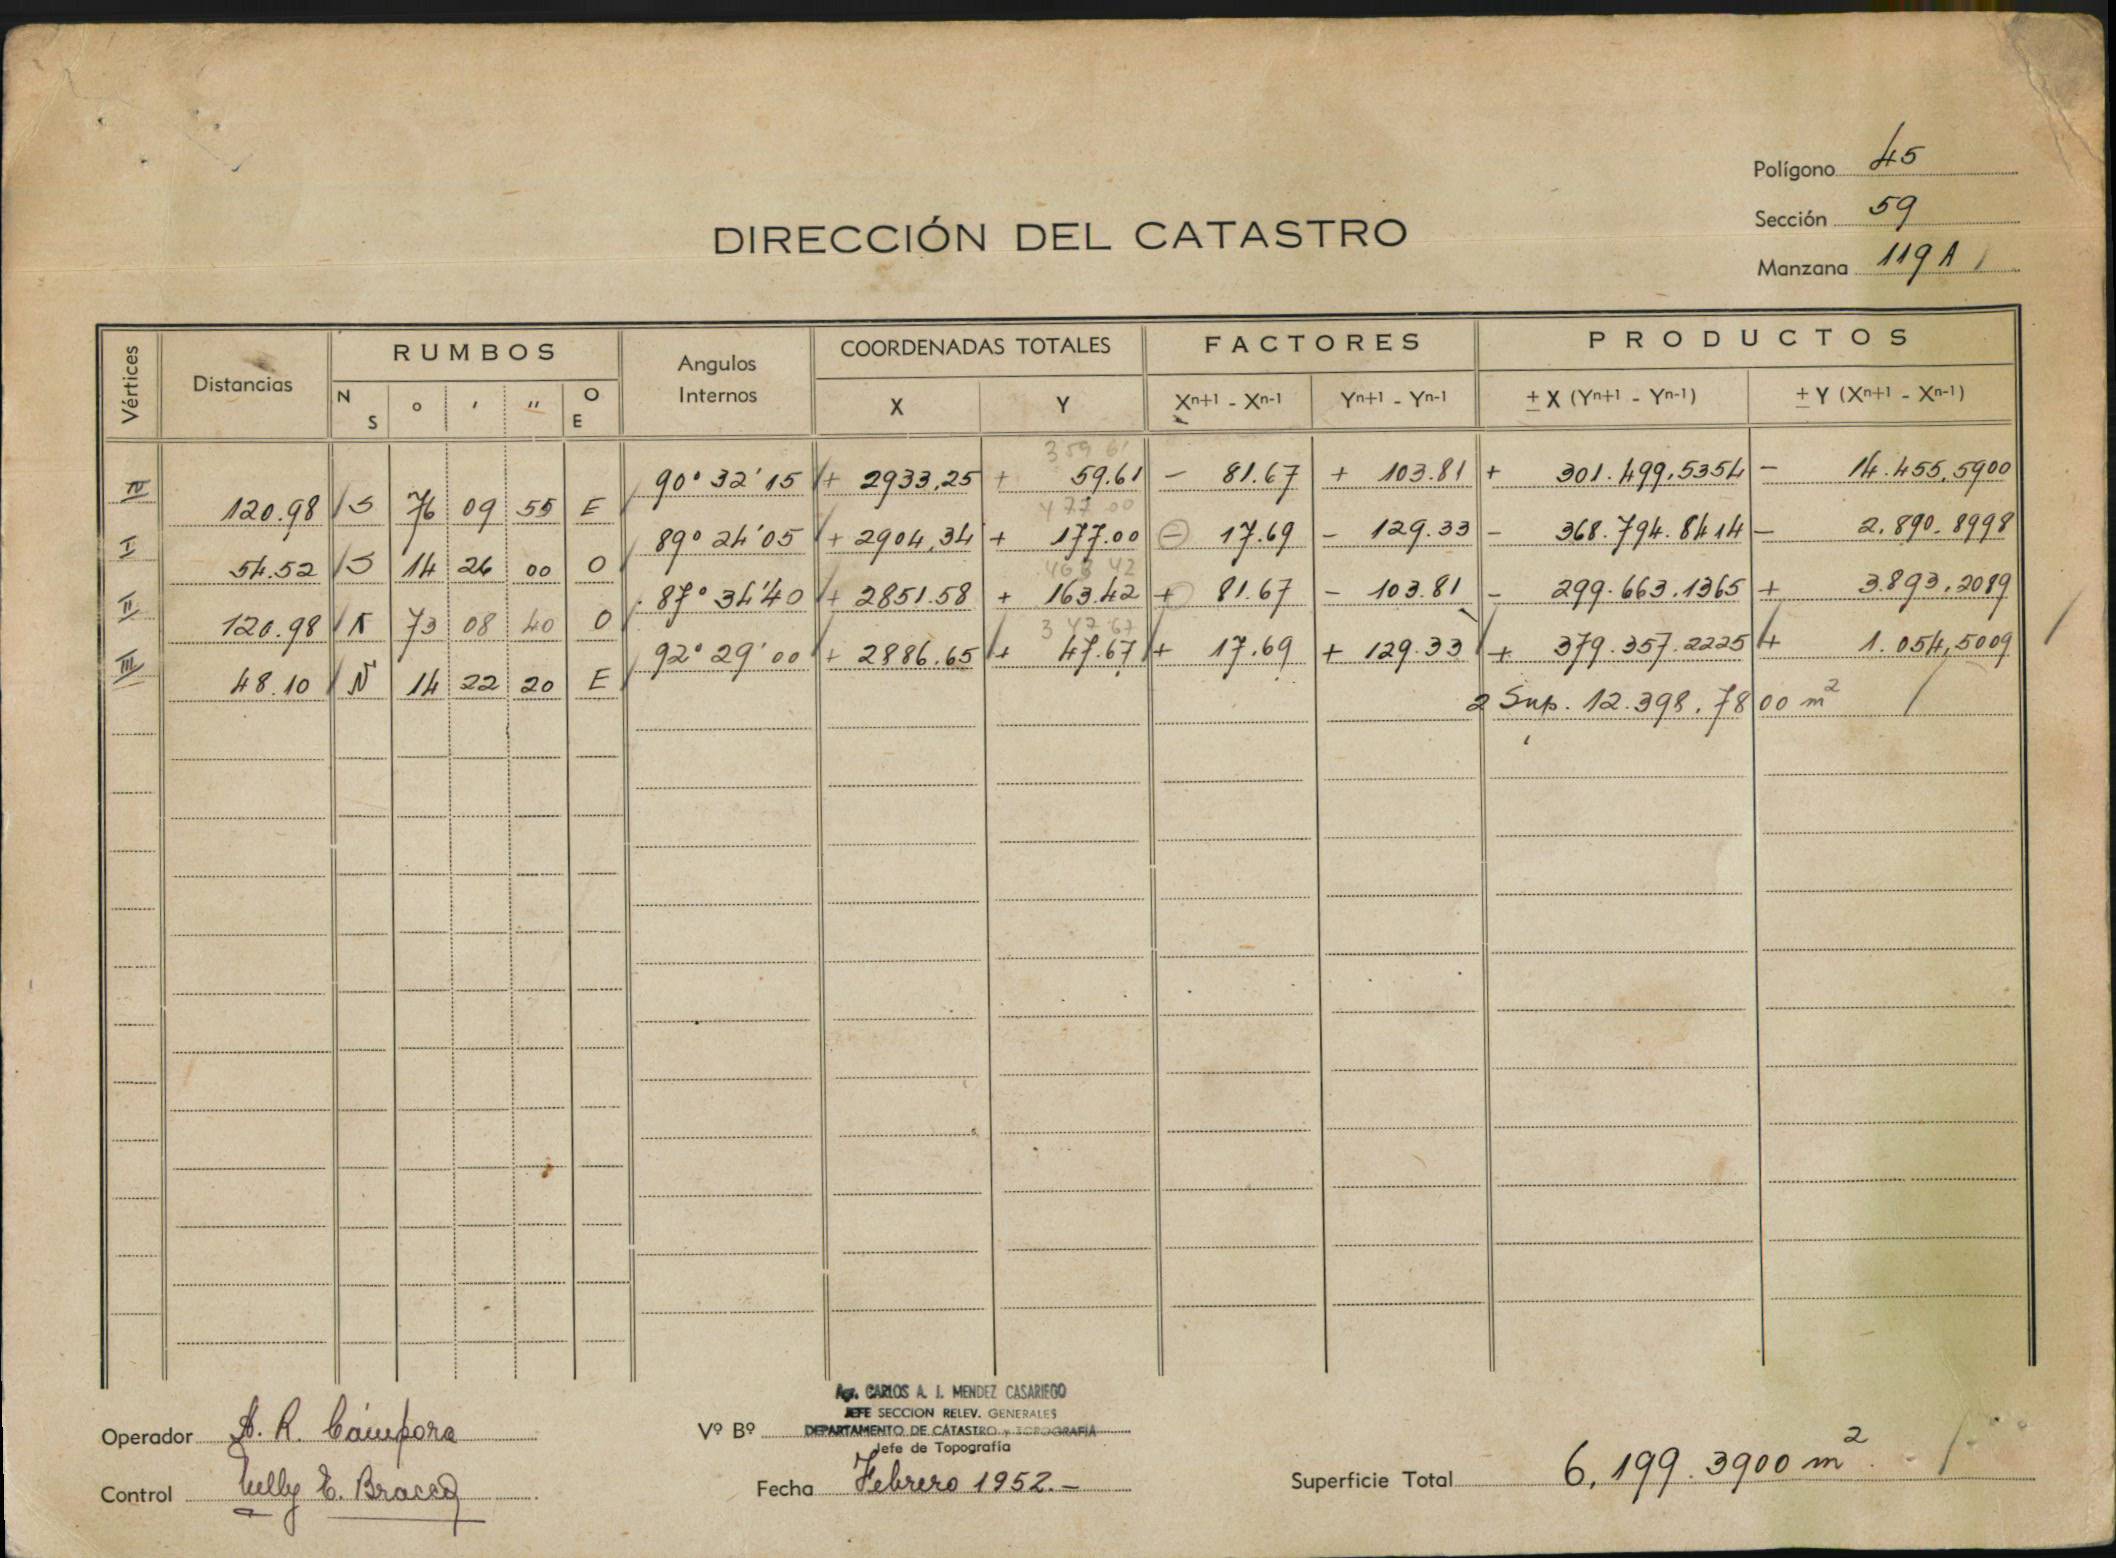 Polígono 45
Sección 59
Manzana 119 A
DIRECCIÓN DEL CATASTRO
Vértices Distancias RUMBOS Angulos Internos COORDENADAS TOTALES FACTORES PRODUCTOS
N S ° ' " O E X Y Xn+1 - Xn-1 Yn+1 - Yn-1 ± X (Yn+1 - Yn-1) ± Y (Xn+1 - Xn-1)
359 61
IV 90° 32' 15 + 2933,25 + 59.61 - 81.67 + 103.81 + 301.499,5354 - 14.455,5900
120.98 S 76 09 55 E
477 00
I 89° 24' 05 + 2904,34 + 177.00 - 17.69 - 129.33 - 368.794.8414 - 2.890.8998
54.52 S 14 26 00 O
463 42
II 87° 34' 40 + 2851.58 + 163.42 + 81.67 - 103.81 - 299.663.1365 + 3.893.2089
120.98 N 73 08 40 O
347 67
III 92° 29' 00 + 2886.65 + 47.67 + 17.69 + 129.33 + 379.357.2225 + 1.054,5009
48.10 N 14 22 20 E
2 Sup. 12.398.7800 m²
Agr. CARLOS A. J. MENDEZ CASARIEGO
JEFE SECCION RELEV. GENERALES
Operador A. R. Cámpora Vº Bº DEPARTAMENTO DE CATASTRO y TOPOGRAFIA
Jefe de Topografía
Control Nelly E. Bracco Fecha Febrero 1952.- Superficie Total 6,199.3900 m²